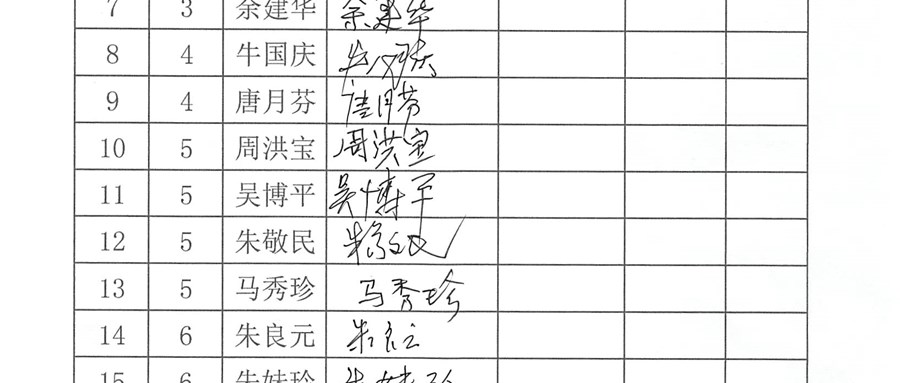 7 3 余建华 余建华
8 4 牛国庆 牛国庆
9 4 唐月芬 唐月芬
10 5 周洪宝 周洪宝
11 5 吴博平 吴博平
12 5 朱敬民 朱敬民
13 5 马秀珍 马秀珍
14 6 朱良元 朱良元
15 6 朱妹珍 朱妹珍